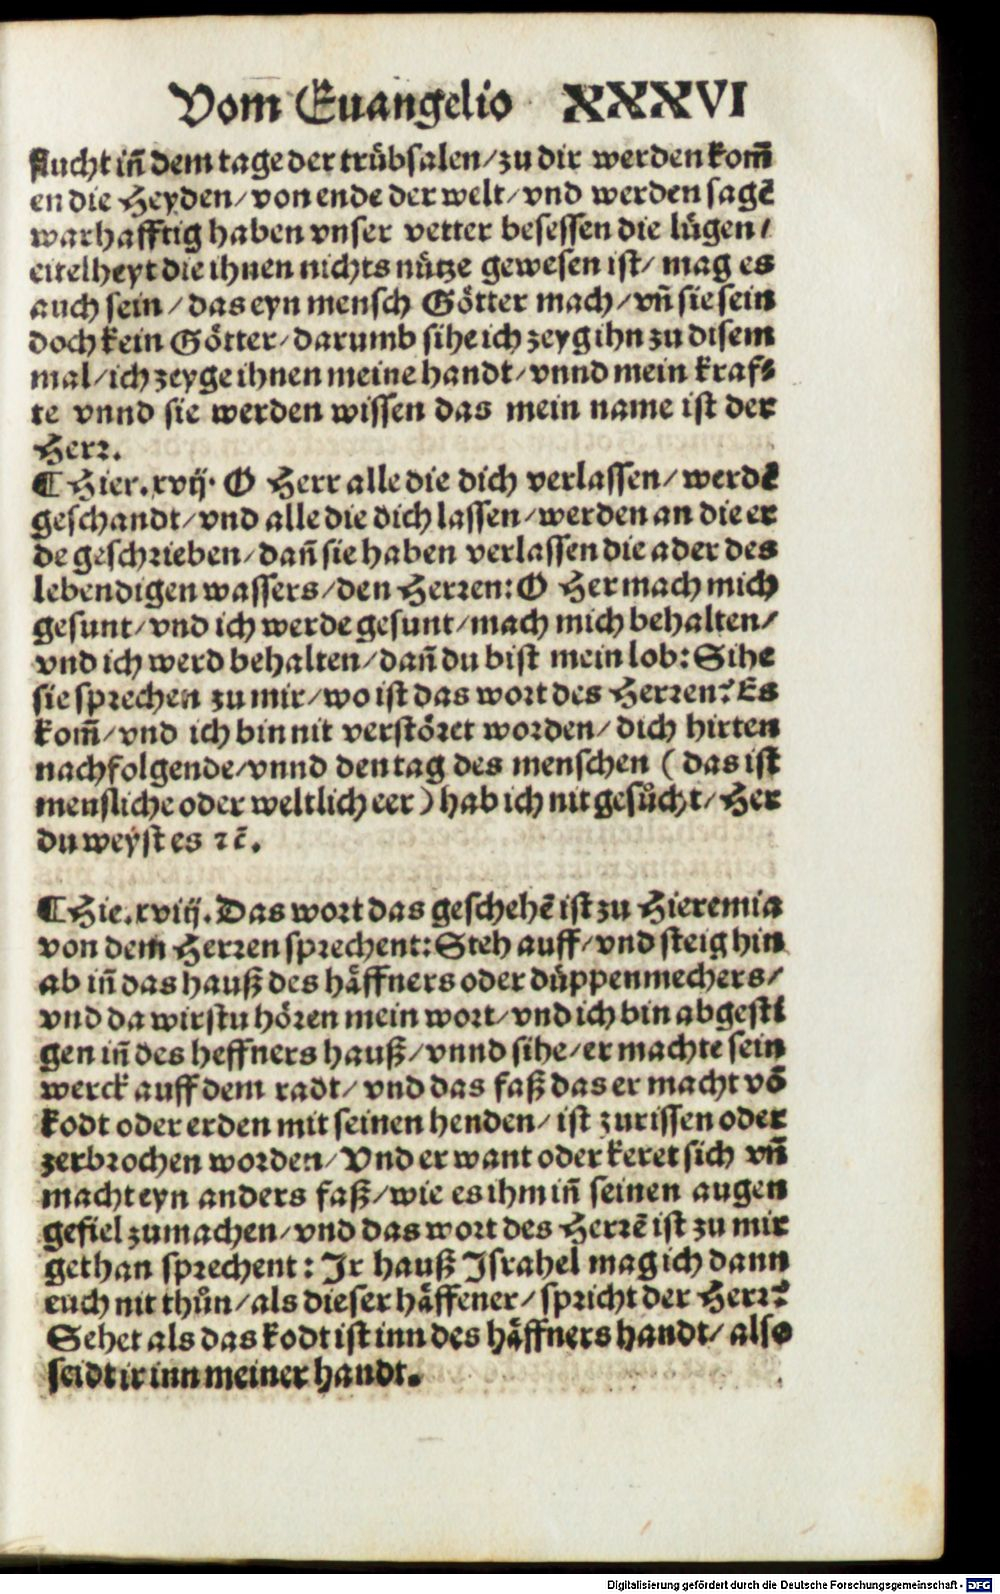 Vom Euangelio XXXVI
flucht iñ dem tage der trübsalen/ zu dir werden kom̃
en die Heyden/ von ende der welt/ vnd werden sagẽ
warhafftig haben vnser vetter besessen die lügen/
eitelheyt die ihnen nichts nütze gewesen ist/ mag es
auch sein/ das eyn mensch Götter mach/ vñ sie sein
doch kein Götter/ darumb sihe ich zeyg ihn zu disem
mal/ ich zeyge ihnen meine handt/ vnnd mein kraf⸗
te vnnd sie werden wissen das mein name ist der
Herr.
¶ Hier. xvij. O Herr alle die dich verlassen/ werdẽ
geschandt/ vnd alle die dich lassen/ werden an die er
de geschrieben/ dañ sie haben verlassen die ader des
lebendigen wassers/ den Herren: O Her mach mich
gesunt/ vnd ich werde gesunt/ mach mich behalten/
vnd ich werd behalten/ dañ du bist mein lob: Sihe
sie sprechen zu mir/ wo ist das wort des Herren? Es
kom̃/ vnd ich bin nit verstöret worden/ dich hirten
nachfolgende/ vnnd den tag des menschen (das ist
mensliche oder weltlich eer) hab ich nit gesůcht/ Her
du weyst es ꝛc̃.
¶ Hie. xviij. Das wort das geschehẽ ist zu Hieremia
von dem Herren sprechent: Steh auff/ vnd steig hin
ab iñ das hauß des häffners oder düppenmechers/
vnd da wirstu hören mein wort/ vnd ich bin abgesti
gen iñ des heffners hauß/ vnnd sihe/ er machte sein
werck auff dem radt/ vnd das faß das er macht võ
kodt oder erden mit seinen henden/ ist zurissen oder
zerbrochen worden/ Vnd er want oder keret sich vñ
macht eyn anders faß/ wie es ihm iñ seinen augen
gefiel zumachen/ vnd das wort des Herrẽ ist zu mir
gethan sprechent: Ir hauß Israhel mag ich dann
euch nit thůn/ als dieser häffener/ spricht der Herr?
Sehet als das kodt ist inn des häffners handt/ also
seidt ir inn meiner handt.
Digitalisierung gefördert durch die Deutsche Forschungsgemeinschaft - DFG